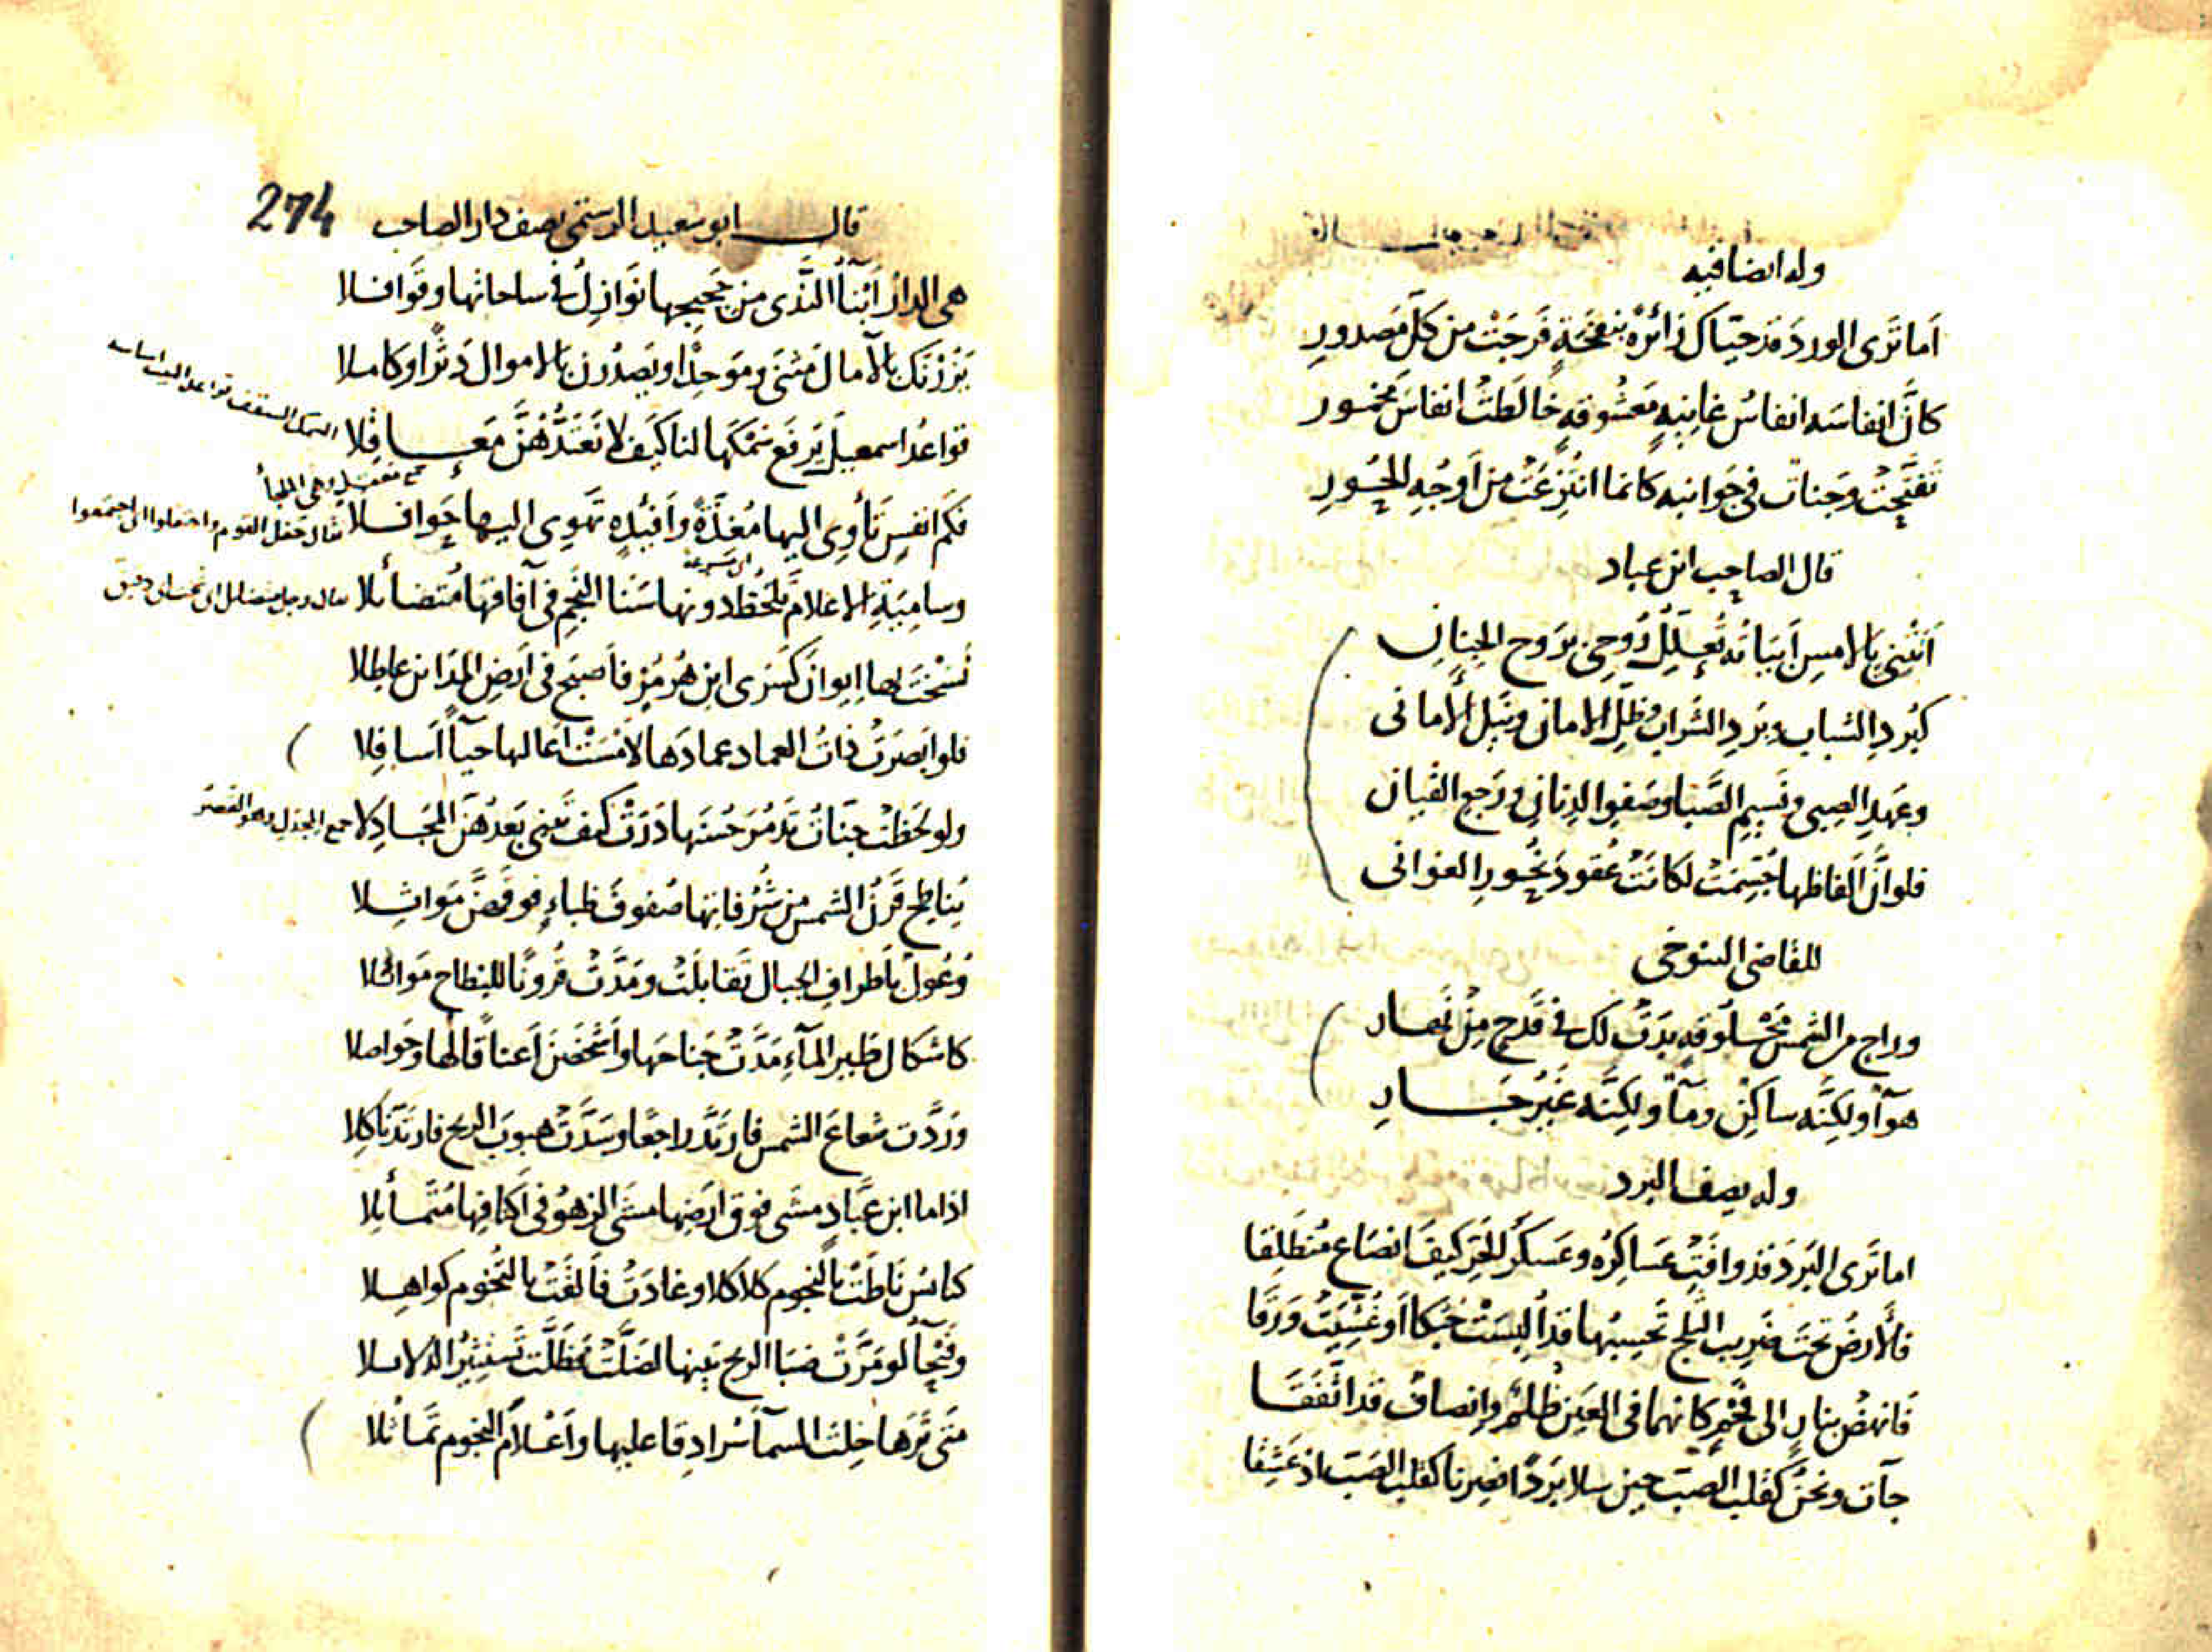 وله ايضا فيه
اَما تَرى الوردَ قد حيّاك زائرهُ بنفحَةٍ فَرجَتْ من كلِّ مَصدورِ
كانَّ انفاسَه انفاسُ غانِيةٍ مَعشُوقةٍ خالَطتْ انفاسَ مخمور
تَفتَّحتْ وجنات في جَوانبه كانما انتُزِعَتْ من اَوجُهِ الحُورِ
قال الصاحب ابن عباد
اَتَتْني بالامسِ اَبياتُه تُعلِّلُ رُوحي بِرَوح الجِنانِ
كبُردِ الشباب وبَردِ الشَراب وظِلِّ الاماني ونيلِ الاماني
وعَهدِ الصِبى ونَسيمِ الصَّبا وصَفوِ الدِنانِ ورَجعِ القيان
فلو اَنَّ اَلفاظها جُسِّمَتْ لكانَتْ عُقودَ نحُورِ الغواني
للقاضي التنوخي
وراح من الشمس مخلُوقة بدَتْ لك في قَدَح مِنْ نَهار
هوآء ولكِنَّه ساكِنٌ ومآء ولكِنَّه غَيرُ جَار
وله يصف البرد
اما تَرى البَردَ قد وافَتْ عَساكِرُه وعَسكرُ الحَرِّ كيفَ انصَاعَ مُنطَلِقا
فالارضُ تحتَ ضَرِيب الثلج تَحسِبُها قد اُلبِسَتْ حُبُكا اَو غُشِّيَتْ وَرِقا
فَانهَضْ بنارٍ الى فَحمٍ كانهما في العَين ظُلمٌ وإنصافٌ قد اتَّفَقَا
جآت ونحنُ كقلبِ الصبِّ حين سلا بَردًا فصِرنا كقلبِ الصَبِّ اذ عَشِقا
274
قال ابو سعيد الرستمي يصف دار الصاحب
هي الدارُ اَبنآءُ النَّدى من حَجيجها نَوازِلُ في ساحاتها وقَوافلا
يَزُرْنَك بالآمال مَثنى ومَوحِدًا ويَصدُرن بالاموال دَثْرًا وكاملا
قواعدُ اسمعيل يَرفَع سَمْكَها لنا كيَف لا نَعتَدُّهُنَّ مَعاقِلا
السمك السقف قواعد البيت اساسه
جمع معقل وهي الملجأ
فكَم انفسٍ تَأوِي اليها مُغِذَّةً واَفئِدةٍ تَهوِي اليها حَوافلا
يقال حفل القوم واحتفلوا اي اجتمعوا
اي مسرعة
وساميَةِ الاعلامِ تَلحَظ دونها سَنا النَجمِ في آفاقها مُتضائلا
يقال رجل متضائل اي شخت اي دقيق
نَسَخْتَ بها اِيوانَ كسرى ابنِ هُرمُزٍ فاَصبَح في اَرضِ المدَاين عاطلا
فلو اَبصَرَتْ ذاتُ العماد عمادَها لاَمْسَتْ اَعاليها حيآءً اَسافِلا
ولو لحَظتْ جنّاتُ تدْمُرَ حُسنَها دَرَتْ كيف تُبنى بَعدَهُنَّ المجَادِلا
جمع المجدل وهو القصر
يُناطِح قَرنَ الشمس من شُرُفاتها صُفوفُ ظباءٍ فوقهنّ مَواثلا
وُعُولٌ باَطرافِ الجبال تَقابَلَتْ ومَدَّتْ قُرُونًا للنِطاح مَوائلا
كاشكال طَيرِ المآءِ مَدَّتْ جَناحَها واَشْخَصْنَ اَعناقًا لها وحَواصلا
ورَدَّت شعاعَ الشمس فارتَدَّ راجعًا وسَدَّتْ هبوبَ الريح فارتَدّ ناكِلا
اذا ما ابنُ عَبَّادٍ مشى فوق ارَضِها مشَى الزهوُ في اَكنافِها مُتَمائِلا
كنائسُ ناطَتْ بالنجوم كلاكلا وغادَتْ فاَلفَتْ بالتُخُوم كواهِلا
وفيحآءُ لو مَرَّتْ صَبا الريح بَينها لضَلَّتْ فظَلَّت تَستَثيرُ الدلائلا
متى تَرَها خِلتَ السمآءَ سُرادِقا عليها واَعْلامَ النجوم تَماثُلا